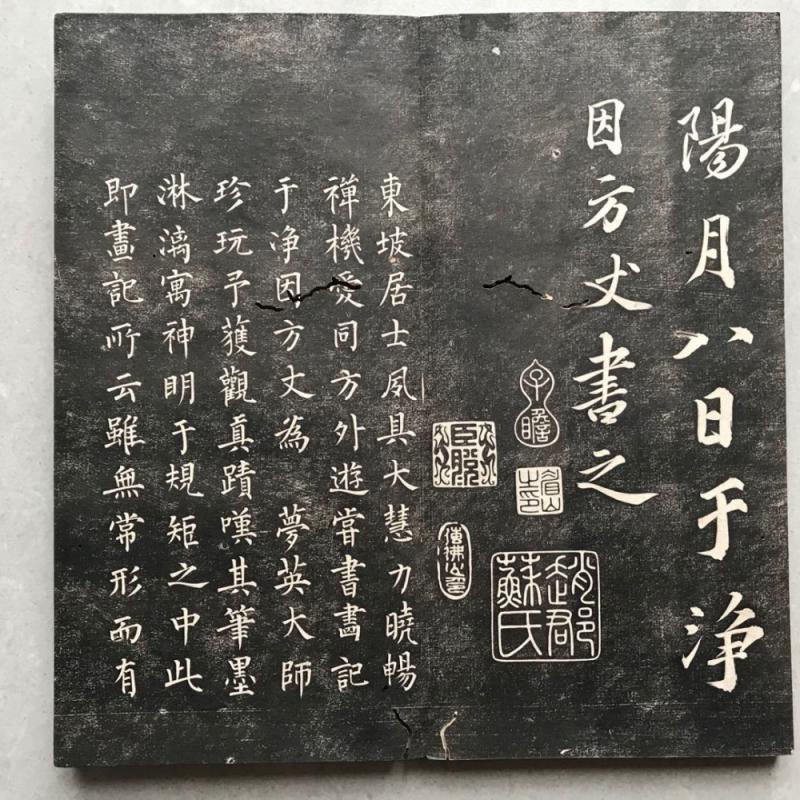 陽月八日于淨
因方丈書之
子瞻
趙郡蘇氏
傳佛心印
東坡居士夙具大慧力曉暢
禪機愛同方外遊嘗書畫記
于淨因方丈為 夢英大師
珍玩予獲觀真蹟嘆其筆墨
淋漓寓神明于規矩之中此
即畫記所云雖無常形而有